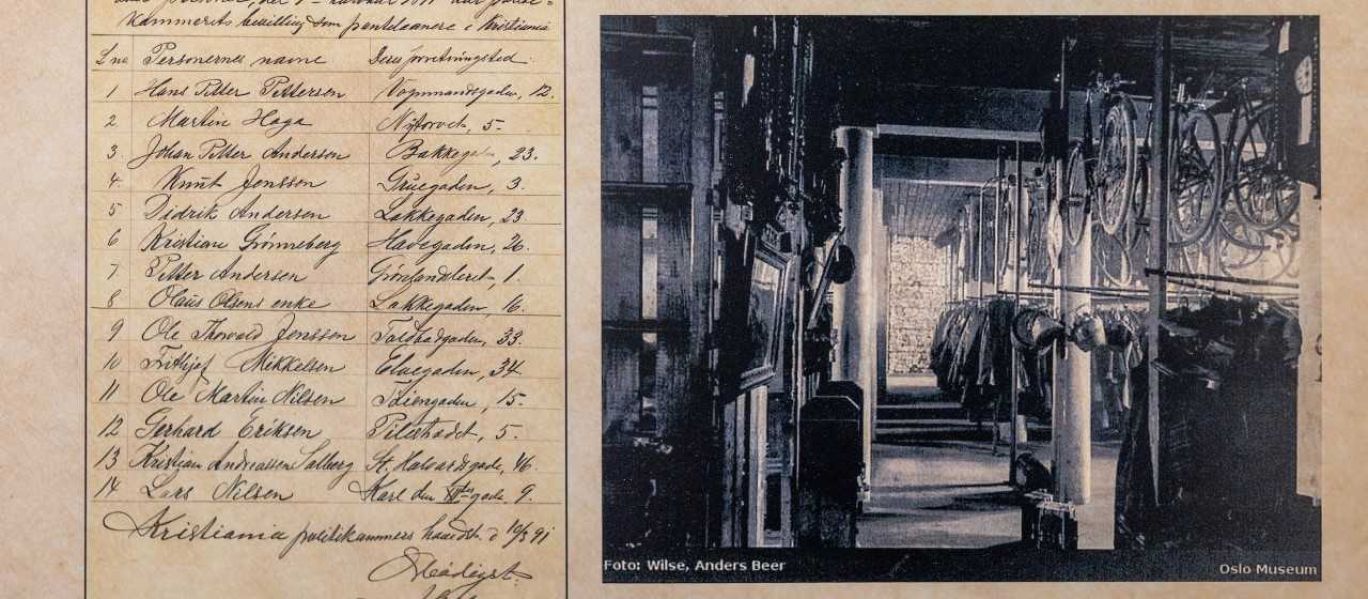 kammerets bevilling som pantelaanere i Kristiania
Lno Personernes navne Deres forretningssted
1 Hans Petter Pettersen Vognmandsgaden, 12.
2 Marten Haga Nytorvet, 5.
3 Johan Petter Andersen 23.
4 Knut Jonssen Gruegaden, 3.
5 Didrik Andersen Lakkegaden, 23
6 Kristian Grönneberg Havegaden, 26.
7 Petter Andersen Grönlandsleret, 1.
8 Olaus Olsens enke Lakkegaden, 16.
9 Ole Thorvald Jonssen 33.
10 Mikkelsen Elvegaden, 34
11 Ole Martin Nilsen Töiengaden, 15.
12 Gerhard Eriksen Pilestrædet, 5.
13 Kristian Andreassen Solberg St. Halvardsgade, 46.
14 Lars Nilsen Karl den gade 9.
Kristiania politikammers 10/3 91
Foto: Wilse, Anders Beer
Oslo Museum